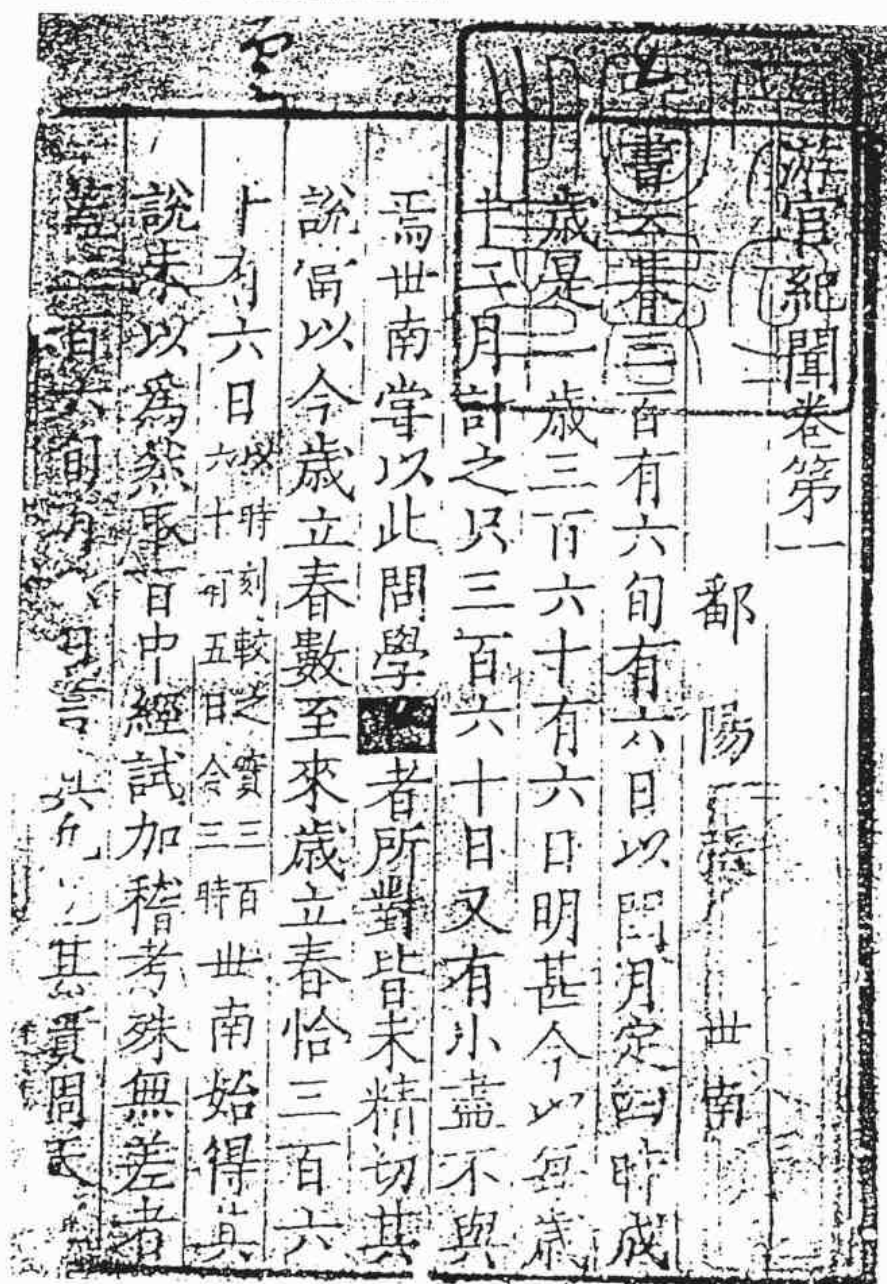 游宦紀聞卷第一
鄱陽張世南
書云朞三百有六旬有六日以閏月定四時成
歲是一歲三百六十有六日明甚今以每歲
十二月計之只三百六十日又有小盡不與
焉世南嘗以此問學者所對皆未精切其
說當以今歲立春數至來歲立春恰三百六
十有六日
以時刻較之實三百
六十有五日令三時
世南始得其
說未以為然取百中經試加稽考殊無差者
三百六旬有六日言其實周天